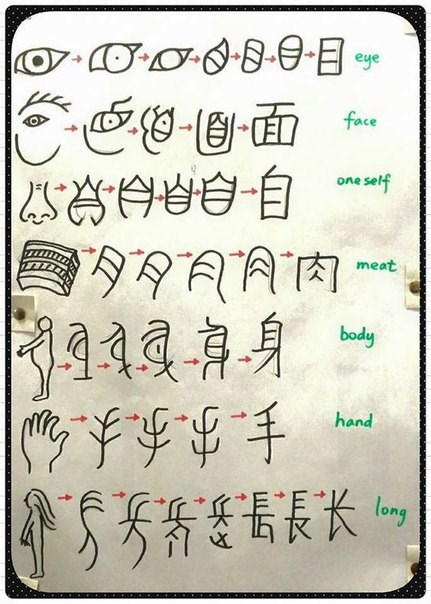 目 eye
面 face
自 oneself
肉 meat
身 body
手 hand
長 長 长 long